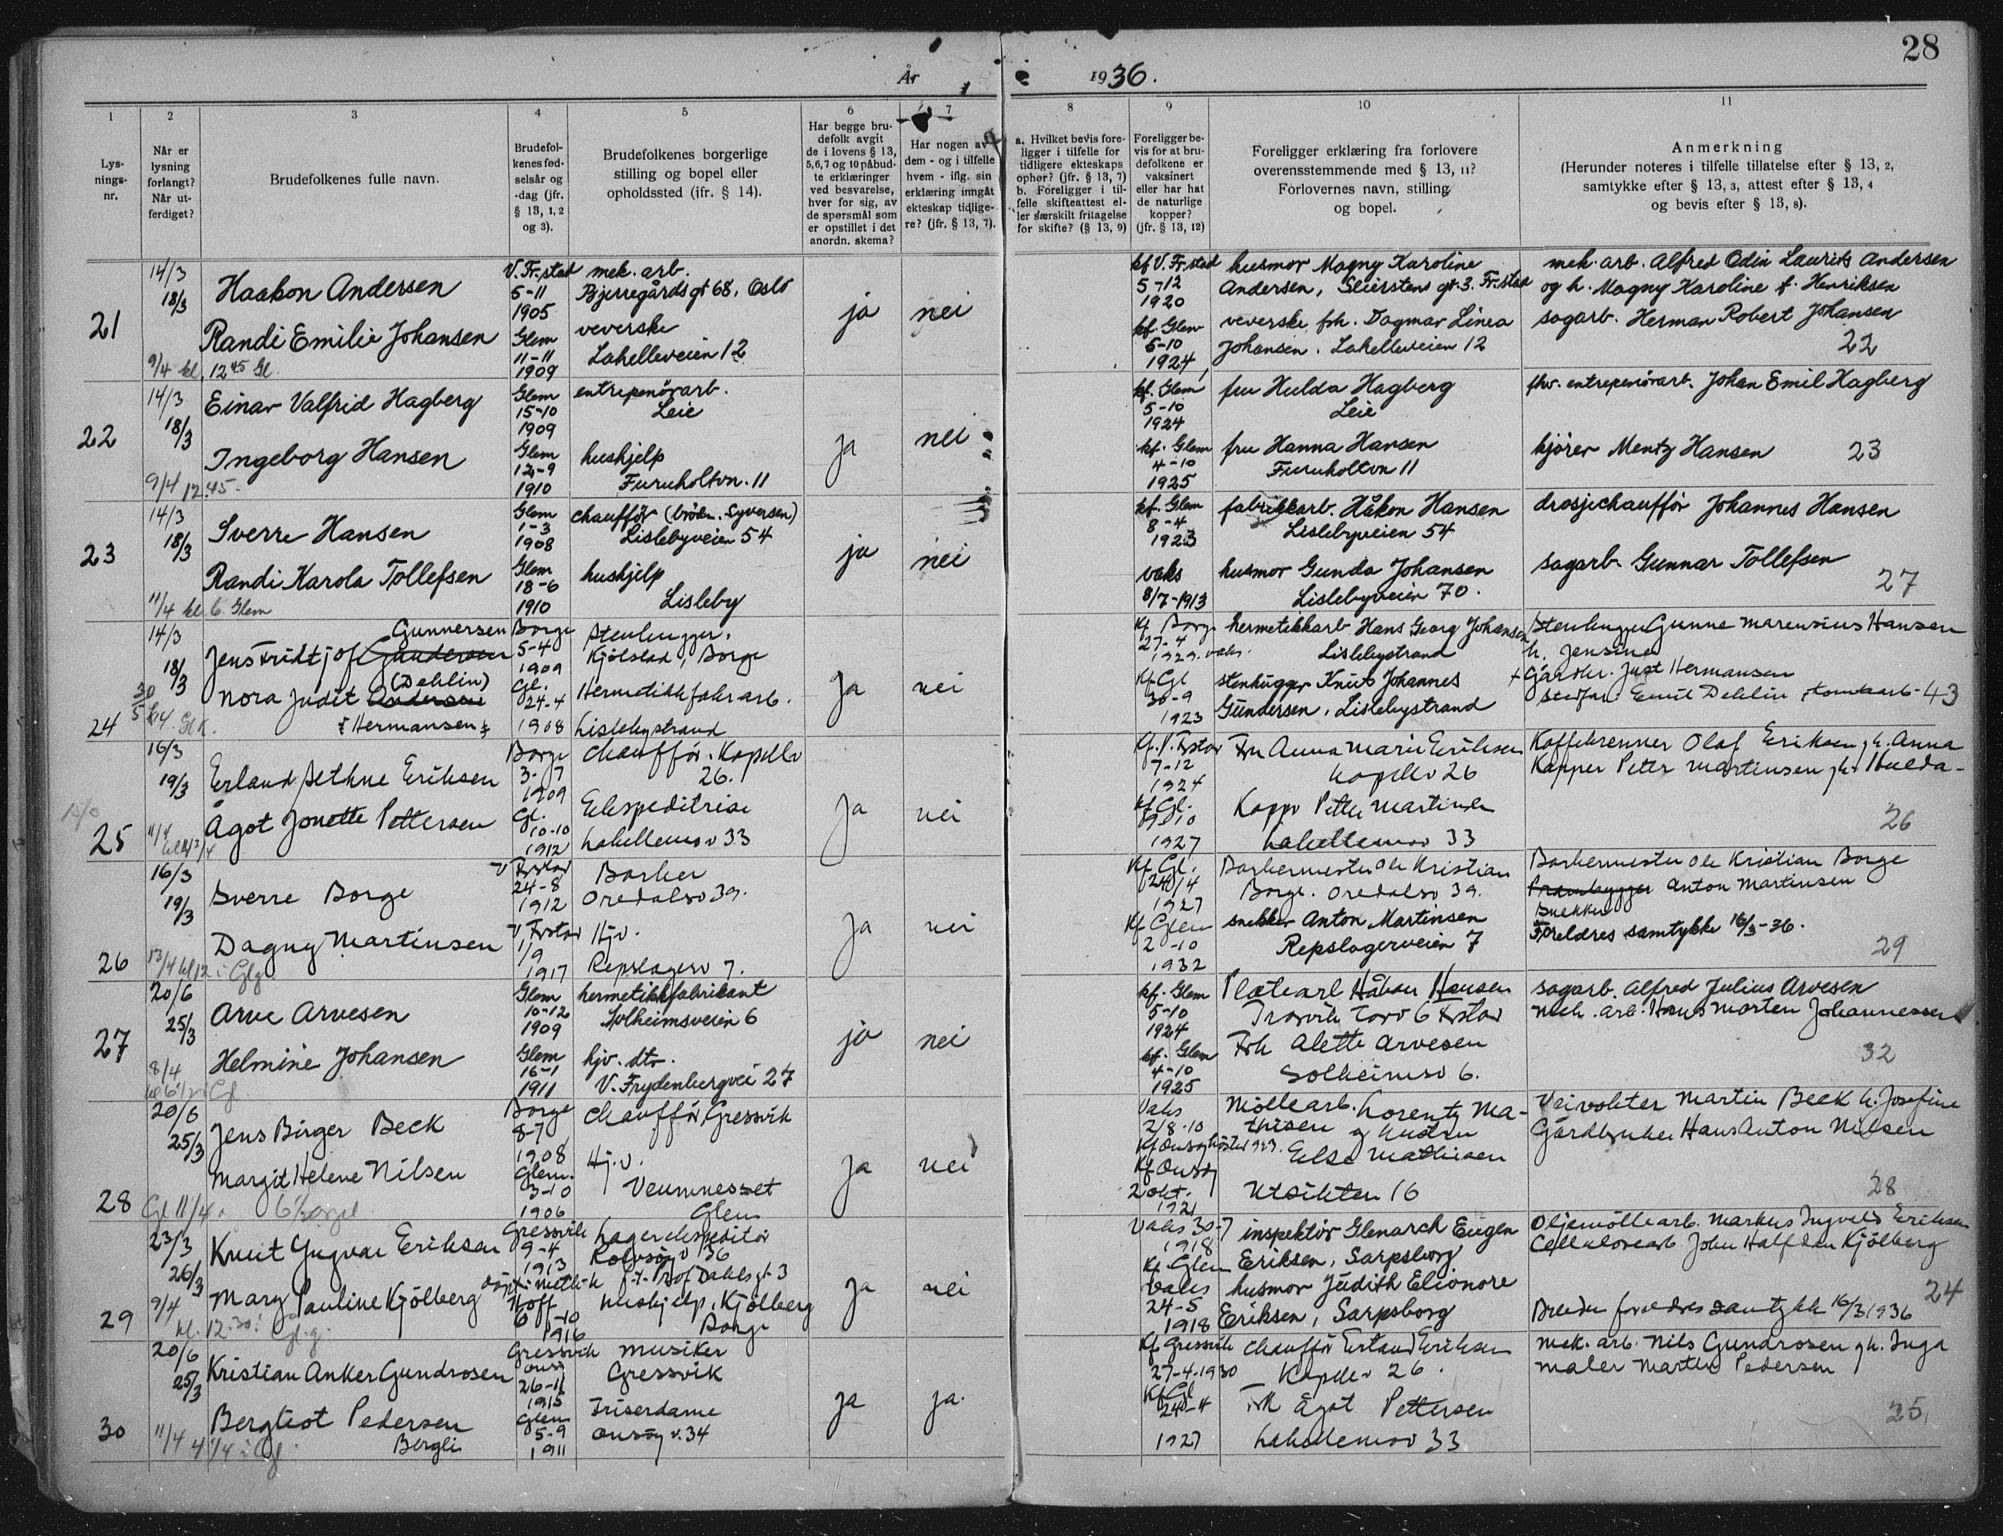 28
År 1936.
1 2 3 4 5 6 7 8 9 10 11
Lys-
nings-
nr.
Når er
lysning
forlangt?
Når ut-
ferdiget?
Brudefolkenes fulle navn.
Brudefol-
kenes fød-
selsår og
-dag (jfr.
§ 13, 1, 2
og 3).
Brudefolkenes borgerlige
stilling og bopel eller
opholdssted (ifr. § 14).
Har begge bru-
defolk avgit
de i lovens § 13,
5,6,7 og 10 påbud-
te erklæringer
ved besvarelse,
hver for sig, av
de spørsmål som
er opstillet i det
anordn. skema?
Har nogen av
dem - og i tilfelle
hvem - iflg. sin
erklæring inngått
ekteskap tidlige-
re? (jfr. § 13, 7).
a. Hvilket bevis fore-
ligger i tilfelle for
tidligere ekteskaps
ophør? (jfr. § 13, 7)
b. Foreligger i til-
felle skifteattest el-
ler særskilt fritagelse
for skifte? (§ 13, 9)
Foreligger be-
vis for at bru-
defolkene er
vaksinert
eller har hat
de naturlige
kopper?
(jfr. § 13, 12)
Foreligger erklæring fra forlovere
overensstemmende med § 13, 11?
Forlovernes navn, stilling
og bopel.
Anmerkning
(Herunder noteres i tilfelle tillatelse efter § 13, 2,
samtykke efter § 13, 3, attest efter § 13, 4
og bevis efter § 13, 8).
21
14/3
18/3
Haakon Andersen
V. Fr.stad
5-11
1905
mek. arb.
Bjerregårds gt 68, Oslo
ja nei
kf V. Fr.stad
5-12
1920
husmor Magny Karoline
Andersen, Seierstens gt. 3. Fr.stad
mek. arb. Alfred Odin Laurits Andersen
og h. Magny Karoline f. Henriksen
Randi Emilie Johansen
9/4 kl. 12 45 Gl.
Glem
11-11
1909
veverske
Lahelleveien 12
kf. Glem
5-10
1924
veverske frk. Dagmar Linea
Johansen. Lahelleveien 12
sagarb. Herman Robert Johansen
22
22
14/3
18/3
Einar Valfrid Hagberg
Glem
15-10
1909
entrepenörarb.
Leie
ja nei
kf. Glem
5-10
1924
fru Hulda Hagberg
Leie
fhv. entrepenörarb. Johan Emil Hagberg
Ingeborg Hansen
9/4 12.45-
Glem
12-9
1910
hushjelp
Furuholtvn. 11
kf. Glem
4-10
1925
fru Hanna Hansen
Furuholtvn 11
kjörer Mentz Hansen
23
23
14/3
18/3
Sverre Hansen
Glem
1-3
1908
chauffør (brödr. Syversen)
Lislebyveien 54
ja nei
kf. Glem
8-4
1923
fabrikkarb. Håkon Hansen
Lislebyveien 54
drosjechauffør Johannes Hansen
Randi Karola Tollefsen
11/4 kl. 6 Glem
Glem
18-6
1910
hushjelp
Lisleby
vaks
8/7-1913
husmor Gunda Johansen
Lislebyveien 70.
sagarb. Gunnar Tollefsen
27
24
14/3
18/3
Gunnersen
Jens Fridtjof Gundersen
Borge
5-4
1909
Stenhugger,
Kjölstad, Borge
ja nei
Kf Borge
27-4
1929. vaks.
hermetikkarb Hans Georg Johansen
Lislebystrand
Stenhugger Gunne Marensius Hansen
h. Jensine
(Dehlin)
Nora Judit Andersen
f Hermansen
30/5
Gl.
24-4
1908
Hermetikkfabr arb.
Lislebystrand
Kf Gl
30-9
1923
stenhugger Knut Johannes
Gundersen, Lislebystrand
+ Gårdbr. Just Hermansen
stedfar Emil Dehlin
43
25
16/3
19/3
Erland Sethne Eriksen
Borge
3-7
1909
Chauffør. Kapellv
26.
ja nei
Kf. V. Frstad
7-12
1924
Fru Anna Marie Eriksen
Kapellv 26
Kaffebrenner Olaf Eriksen g h. Anna
Kapper Peter Martinsen g h. Hulda-
Ågot Jonette Pettersen
11/4
Gl.
10-10
1912
Ekspeditrise
Lahellemov 33
Kf Gl.
1927
Kapper Petter Martinsen
Lahellemov 33
26
26
16/3
19/3
Sverre Borge
V Frstad
24-8
1912
Barber
Oredalsv 39.
ja nei
Kf. Gl.
1927
Barbermester Ole Kristian
Borge. Oredalsv 39.
Barbermester Ole Kristian Borge
Prambygger Anton Martinsen
Snekker
Dagny Martinsen
13/4 kl 12 i Gl
V Frstad
1/9
1917
Hj.v.
Repslagerv 7.
Kf Glem
2-10
1932
snekker Anton Martinsen
Repslagerveien 7
Foreldres samtykke 16/3-36.
29
27
20/6
25/3
Arve Arvesen
Glem
10-12
1909
hermetikkfabrikant
Solheimsveien 6
ja nei
kf. Glem
5-10
1924
Platearb Håkon Hansen
Trosvik Torv 6 Frstad
sagarb. Alfred Julius Arvesen
mek. arb. Hans Morten Johannessen
Helmine Johansen
8/4
Glem
16-1
1911
hjv. dtr.
V. Frydenbergvei 27
kf. Glem
4-10
1925
Frk Alette Arvesen
Solheimsv 6.
32
28
20/6
25/3
Jens Birger Beck
Borge
8-7
1908
Chauffør, Gressvik
ja nei
Vaks
2/8-10
Møllearb. Lorentz Ma-
thisen og hustru
Veivokter Martin Beck h. Josefine
Gårdbruker Hans Anton Nilsen
Margit Helene Nilsen
Gl 11/4
Glem.
3-10
1906
Hj.v.
Veumneset
Glem
Kf Onsøy
2 okt.
1921
Else Mathisen
Utsikten 16
28
29
23/3
26/3
Knut Yngvar Eriksen
Gressvik
9-4
1913
Lagerekspeditør
Rolvsøyv 36
ja nei
Vaks 30-7
1918
Kf. Glem
inspektör Glenarch Eugen
Eriksen, Sarpsborg
Oljemöllearb. Markus Ingvald Eriksen
Cellulosearb. John Halfdan Kjölberg
Mary Pauline Kjölberg
9/4
kl. 12.30 i Gl. g.
Hoff
6-10
1916
f.t. Prof Dahls gt 3
Hushjelp, Kjölberg
Borge
Vaks
24-5
1918
husmor Judith Elionore
Eriksen, Sarpsborg
24
Brudens foreldres samtykke 16/3 1936
30
20/6
25/3
Kristian Anker Gundrosen
Gressvik
Onsø
26-11
1915
Musiker
Gressvik
ja ja.
Kf Gressvik
27-4-1930
Chauffør Erland Eriksen
Kapellv 26.
mek. arb. Nils Gundrosen g h. Inga
maler Martin Pedersen
Bergliot Pedersen
Bergli
11/4 4 1/4 i Gl
Glem
5-9
1911
Friserdame
Onsøy v. 34
Kf Gl
24-4
1927
Frk Ågot Pettersen
Lahellemov 33
25